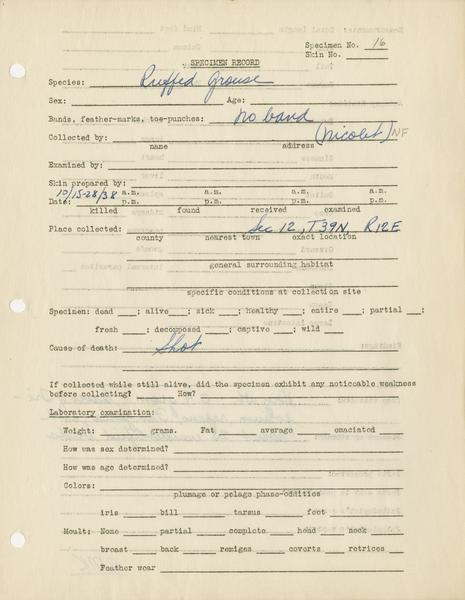 Specimen No. 16
Skin No.
SPECIMEN RECORD
Species: Ruffed grouse
Sex: Age:
Bands, feather-marks, toe-punches: no band
Collected by: (Nicolet) NF
name address
Examined by:
Skin prepared by:
10/15-28/38 a.m. a.m. a.m. a.m.
Date: p.m. p.m. p.m. p.m.
killed found received examined
Place collected: Sec 12, T39N, R12E
county nearest town exact location
general surrounding habitat
specific conditions at collection site
Specimen: dead ; alive ; sick ; healthy ; entire ; partial ;
fresh ; decomposed ; captive ; wild
Cause of death: Shot
If collected while still alive, did the specimen exhibit any noticeable weakness
before collecting? How?
Laboratory examination:
Weight: grams. Fat average emaciated
How was sex determined?
How was age determined?
Colors:
plumage or pelage phase-oddities
iris bill tarsus foot
Moult: None partial complete head neck
breast back remiges coverts retrices
Feather wear